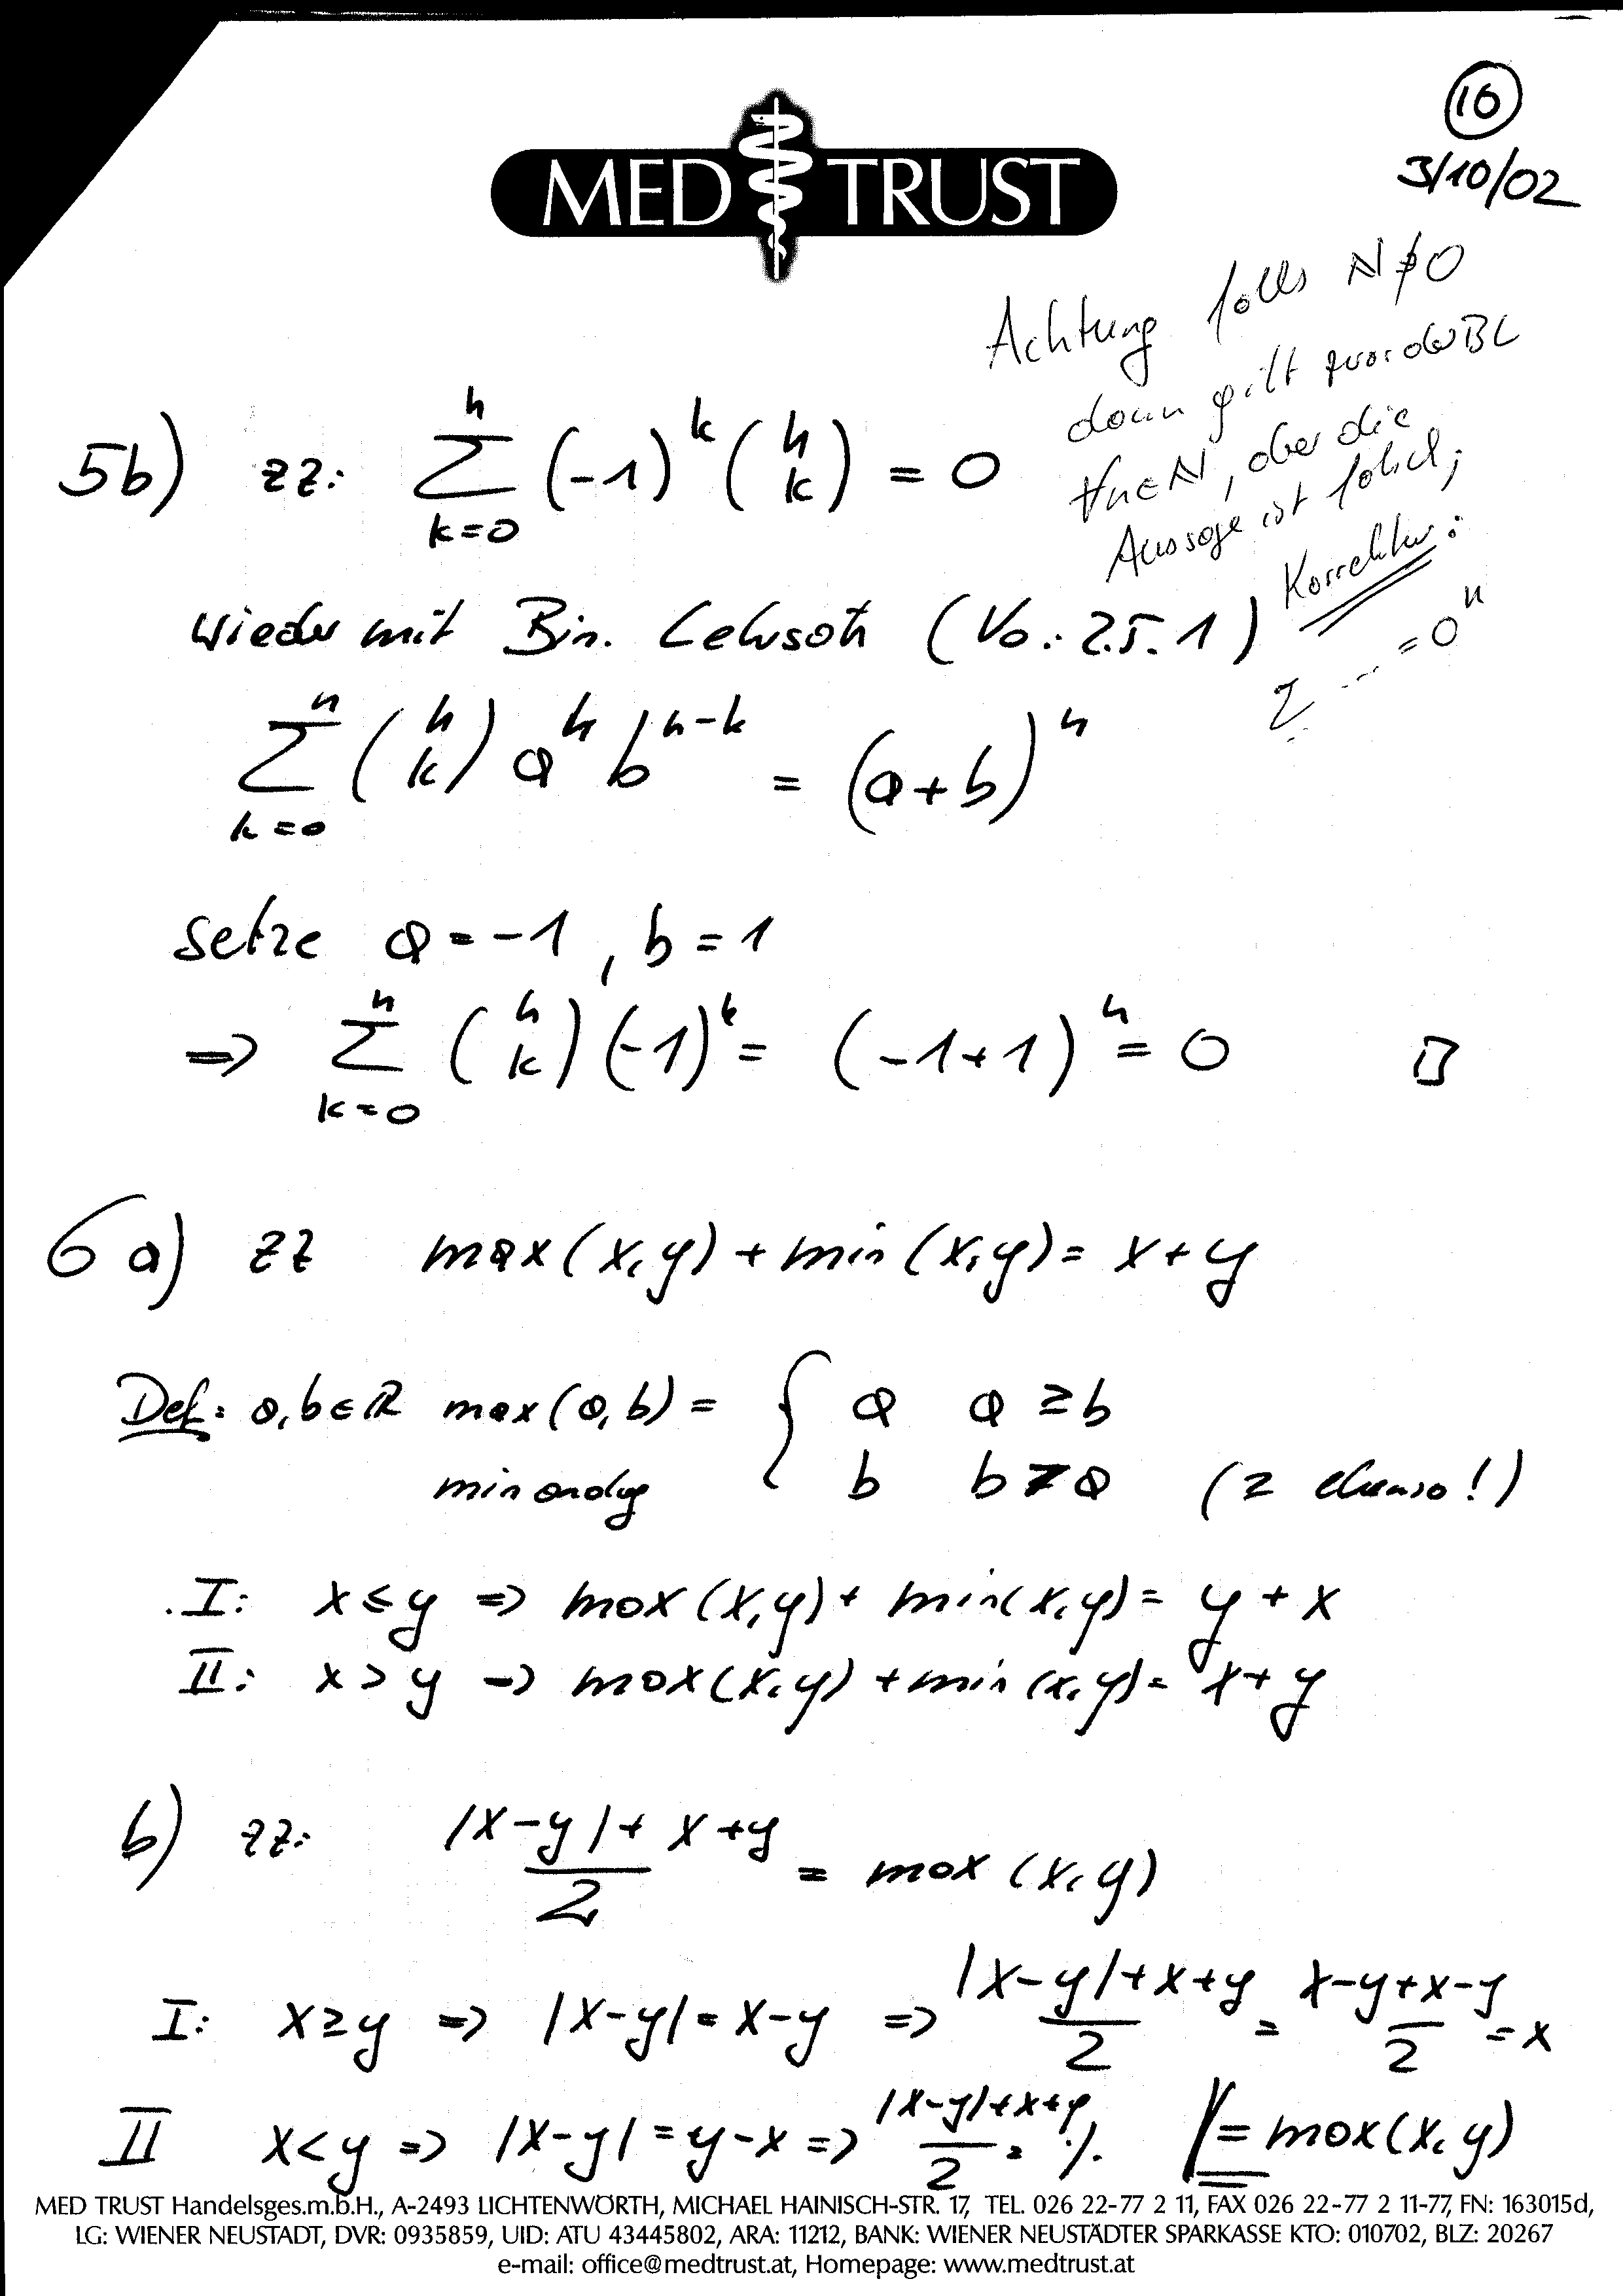 16
3/10/02
MED TRUST
Achtung falls N∌0
dann gilt zwar der BL
∀n∈N, aber die
Aussage ist falsch;
Korrektur:
Σ --- = 0^n
5b) zz: Σ_{k=0}^{n} (-1)^k (n k) = 0
wieder mit Bin. Lehrsatz (Vo.: 2.5.1)
Σ_{k=0}^{n} (n k) a^k b^{n-k} = (a+b)^n
setze a = -1, b = 1
=> Σ_{k=0}^{n} (n k) (-1)^k = (-1+1)^n = 0 □
6a) zz max(x,y) + min(x,y) = x+y
Def: a,b∈ℝ max(a,b) = { a a ≥ b
min analog b b ≥ a (≥ ebenso!)
I: x ≤ y => max(x,y) + min(x,y) = y + x
II: x > y => max(x,y) + min(x,y) = x + y
b) zz: (|x-y| + x+y)/2 = max(x,y)
I: x ≥ y => |x-y| = x-y => (|x-y|+x+y)/2 = (x-y+x-y)/2 = x
II x < y => |x-y| = y-x => (|x-y|+x+y)/2 = ·/. = max(x,y)
MED TRUST Handelsges.m.b.H., A-2493 LICHTENWÖRTH, MICHAEL HAINISCH-STR. 17, TEL. 026 22-77 2 11, FAX 026 22-77 2 11-77, FN: 163015d,
LG: WIENER NEUSTADT, DVR: 0935859, UID: ATU 43445802, ARA: 11212, BANK: WIENER NEUSTÄDTER SPARKASSE KTO: 010702, BLZ: 20267
e-mail: office@medtrust.at, Homepage: www.medtrust.at